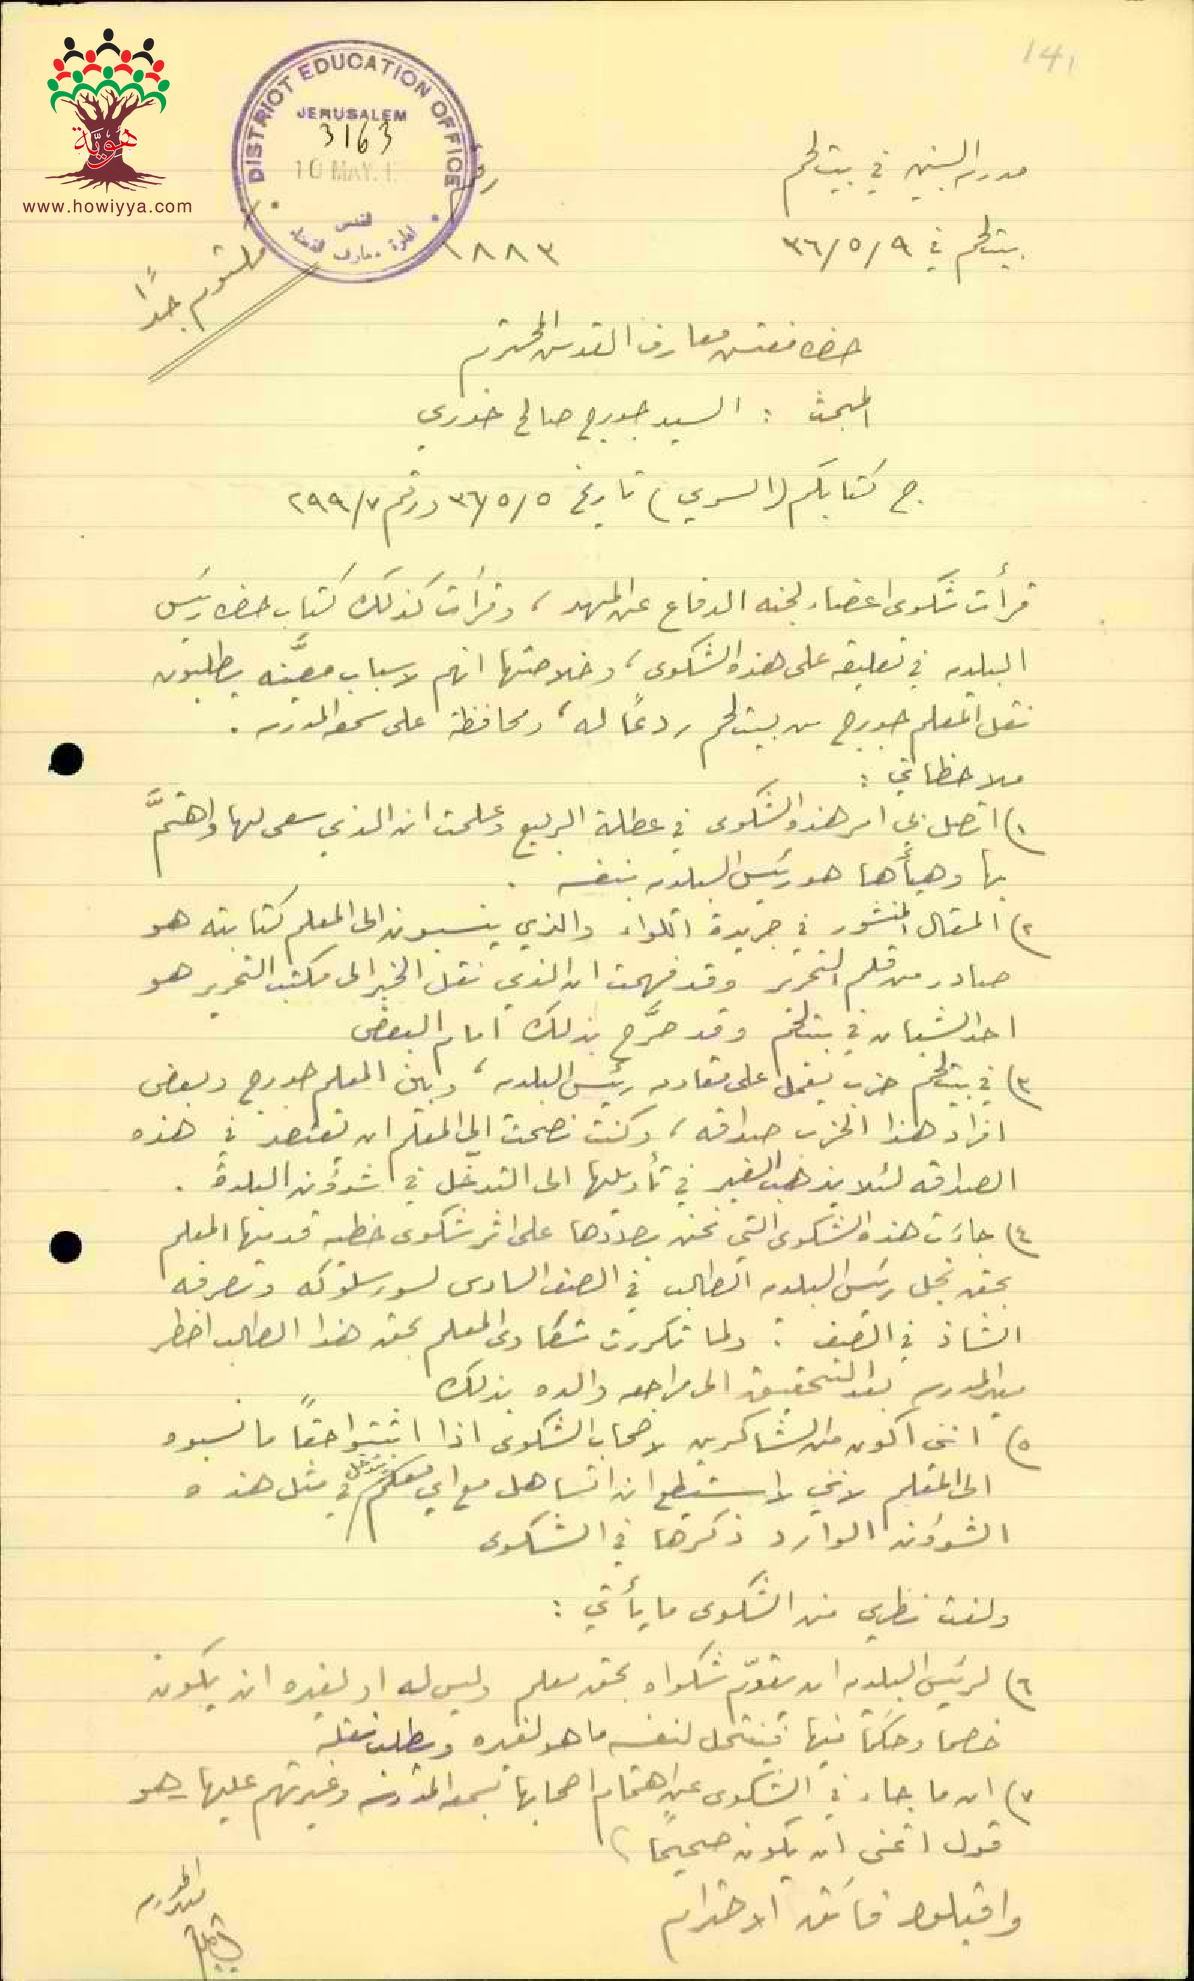 141
هويّة
www.howiyya.com
DISTRICT EDUCATION OFFICE
JERUSALEM
3163
10 MAY. 1
القدس
مدرسة البنين في بيت لحم
رقم
بيت لحم في ٣٦/٥/٩
١٨٨٣
مكتوم جدًا
حضرة مفتش معارف القدس المحترم
المبحث : السيد جورج صالح خوري
ج كتابكم (السري) تاريخ ٣٦/٥/٥ ورقم ٢٩٩/٧
قرأت شكوى اعضاء لجنة الدفاع عن المهد ، وقرأت كذلك كتاب حضرة رئيس
البلدية في تعليقه على هذه الشكوى ، وخلاصتها انهم لاسباب معيَّنة يطلبون
نقل المعلم جورج من بيت لحم ردعًا له ، ومحافظة على سمعة المدرسة .
ملاحظاتي :
١) اتصل بي امر هذه الشكوى في عطلة الربيع وعلمت ان الذي سعى لها واهتمَّ
بها وهيأها هو رئيس البلدية بنفسه .
٢) المقال المنشور في جريدة اللواء والذي ينسبون الى المعلم كتابته هو
صادر من قلم التحرير وقد فهمت ان الذي نقل الخبر الى مكتب التحرير هو
احد الشبان في بيت لحم وقد صرَّح بذلك امام البعض
٣) في بيت لحم حزب يعمل على مقاومة رئيس البلدية ، وبين المعلم جورج وبعض
افراد هذا الحزب صداقة ، وكنت نصحت الى المعلم ان يقتصد في هذه
الصداقة لئلا يذهب الغير في تأويلها الى التدخّل في شؤون البلدة .
٤) جاءت هذه الشكوى التي نحن بصددها على اثر شكوى خطية قدمها المعلم
بحق نجل رئيس البلدية الطالب في الصف السادس لسوء سلوكه وتصرفه
الشاذ في الصف : ولما تكررت شكاوى المعلم بحق هذا الطالب اضطر
مدير المدرسة بعد التحقيق الى مراجعة والده بذلك
٥) انني اكون من الشاكرين لاصحاب الشكوى اذا اثبتوا حقاً ما نسبوه
الى المعلم لانني لا استطيع ان اتساهل مع اي معلم يتدخل في مثل هذه
الشؤون الوارد ذكرها في الشكوى
ولفت نظري من الشكوى ما يأتي :
٦) لرئيس البلدية ان يقدّم شكواه بحق معلم وليس له او لغيره ان يكون
خصما وحكمًا فيها فينتحل لنفسه ما هو لغيره ويطلب نقله
٧) ان ما جاء في الشكوى عن اهتمام اصحابها بسمعة المدرسة وغيرتهم عليها - هو
قول اتمنى ان يكون صحيحًا
واقبلوا فائق الاحترام
مدير المدرسة